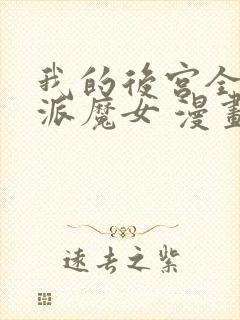 我的後宮全
派魔女 漫畫
遠去之紫